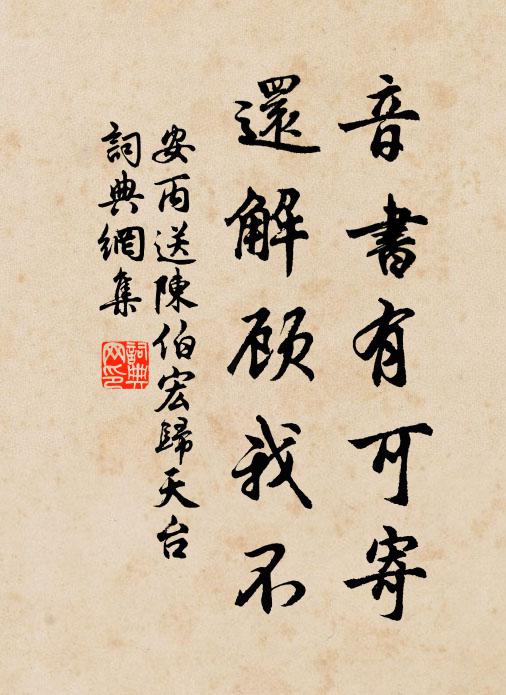 音書有可寄
還解顧我不
安丙送陳伯宏歸天台
詞典網集
詞典网印